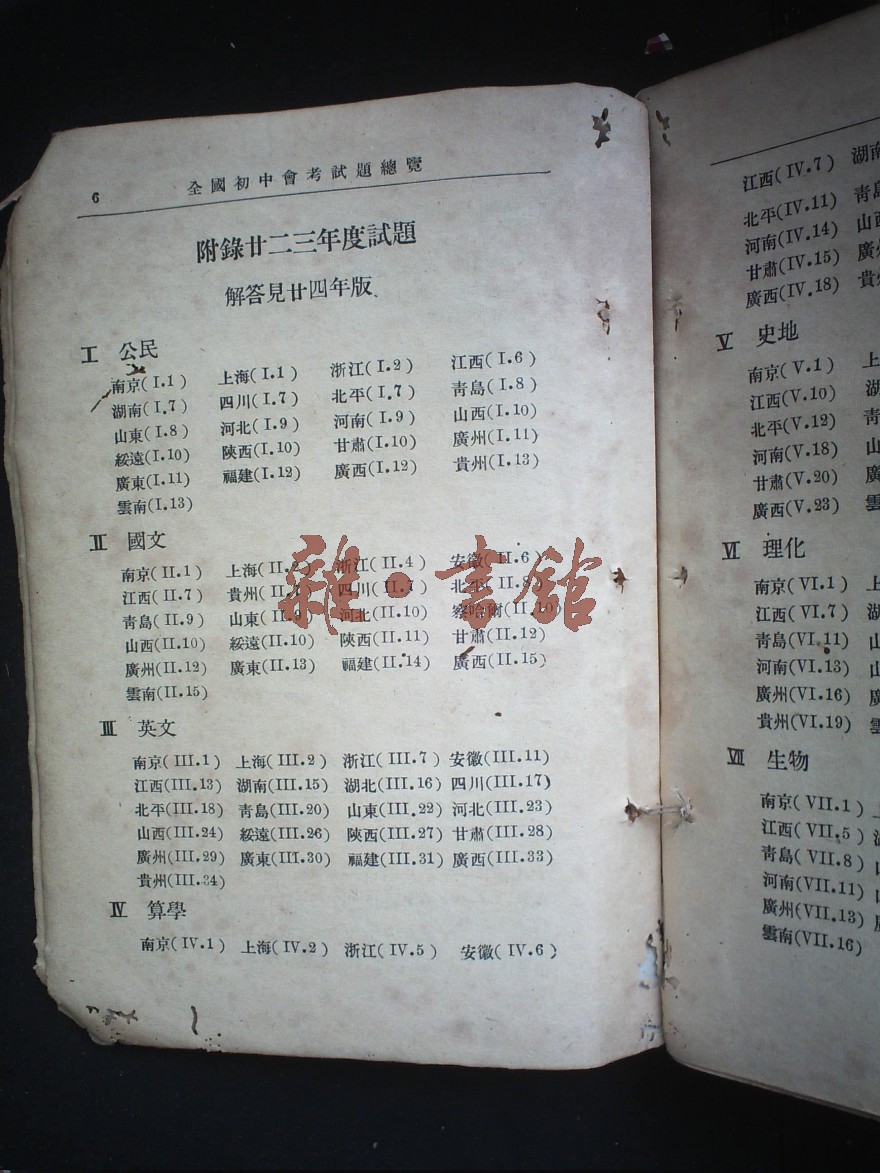 6 全國初中會考試題總覽
附錄廿二三年度試題
解答見廿四年版
I 公民
南京(I.1) 上海(I.1) 浙江(I.2) 江西(I.6)
湖南(I.7) 四川(I.7) 北平(I.7) 靑島(I.8)
山東(I.8) 河北(I.9) 河南(I.9) 山西(I.10)
綏遠(I.10) 陝西(I.10) 甘肅(I.10) 廣州(I.11)
廣東(I.11) 福建(I.12) 廣西(I.12) 貴州(I.13)
雲南(I.13)
II 國文
南京(II.1) 上海(II.2) 浙江(II.4) 安徽(II.6)
江西(II.7) 貴州(II.7) 四川(II.7) 北平(II.8)
靑島(II.9) 山東(II.9) 河北(II.10) 察哈爾(II.10)
山西(II.10) 綏遠(II.10) 陝西(II.11) 甘肅(II.12)
廣州(II.12) 廣東(II.13) 福建(II.14) 廣西(II.15)
雲南(II.15)
III 英文
南京(III.1) 上海(III.2) 浙江(III.7) 安徽(III.11)
江西(III.13) 湖南(III.15) 湖北(III.16) 四川(III.17)
北平(III.18) 靑島(III.20) 山東(III.22) 河北(III.23)
山西(III.24) 綏遠(III.26) 陝西(III.27) 甘肅(III.28)
廣州(III.29) 廣東(III.30) 福建(III.31) 廣西(III.33)
貴州(III.34)
IV 算學
南京(IV.1) 上海(IV.2) 浙江(IV.5) 安徽(IV.6)
雜·書館
江西(IV.7) 湖南
北平(IV.11) 靑島
河南(IV.14) 山西
甘肅(IV.15) 廣州
廣西(IV.18) 貴
V 史地
南京(V.1) 上
江西(V.10) 湖
北平(V.12) 靑
河南(V.18) 山
甘肅(V.20) 廣
廣西(V.23) 雲
VI 理化
南京(VI.1) 上
江西(VI.7) 湖
靑島(VI.11) 山
河南(VI.13) 山
廣州(VI.16) 廣
貴州(VI.19) 雲
VII 生物
南京(VII.1)
江西(VII.5)
靑島(VII.8)
河南(VII.11)
廣州(VII.13)
雲南(VII.16)